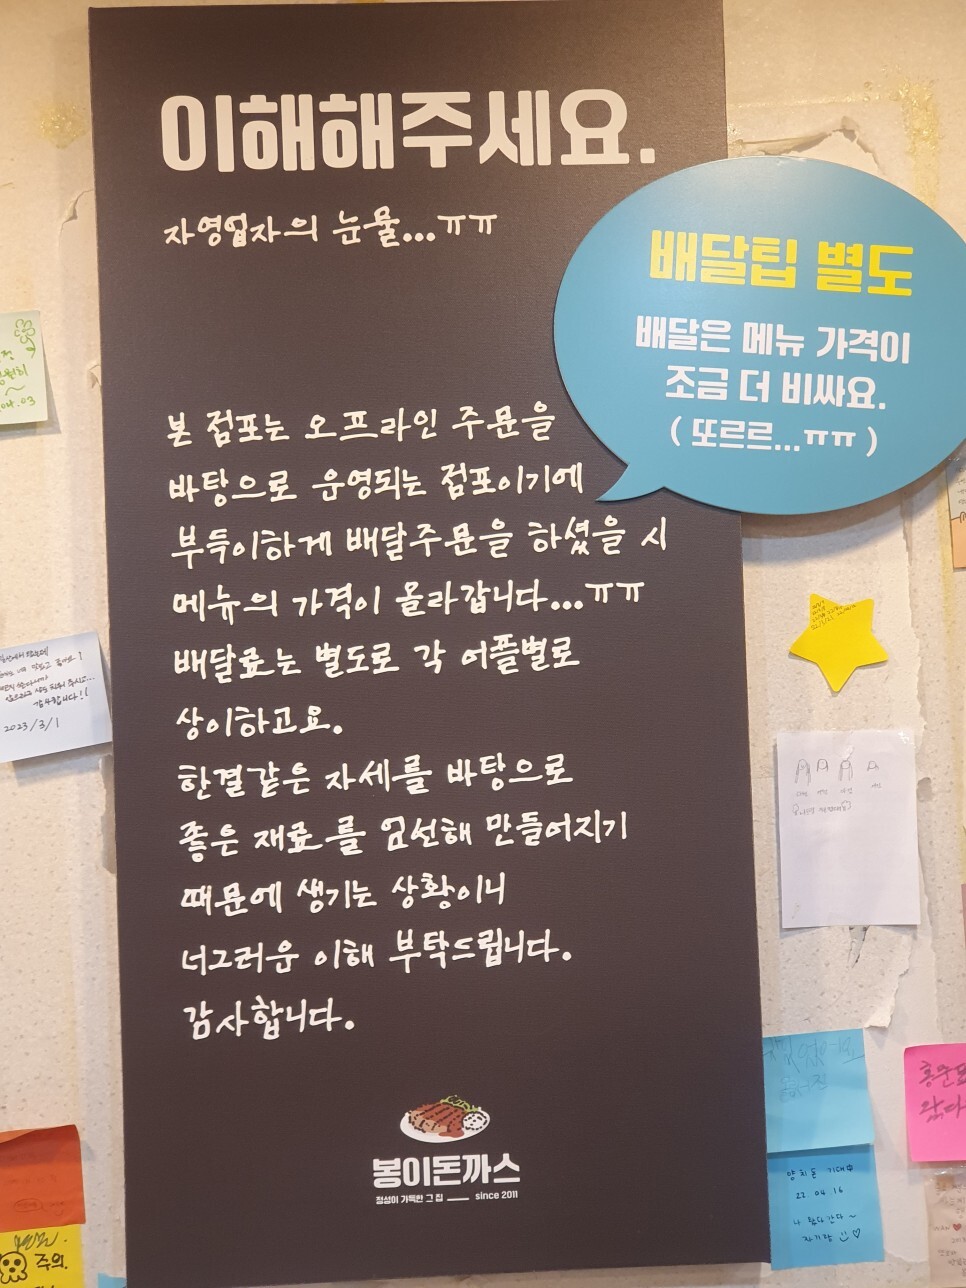 이해해주세요.
자영업자의 눈물...ㅠㅠ
배달팁 별도
배달은 메뉴 가격이
조금 더 비싸요.
( 또르르...ㅠㅠ )
본 점포는 오프라인 주문을
바탕으로 운영되는 점포이기에
부득이하게 배달주문을 하셨을 시
메뉴의 가격이 올라갑니다...ㅠㅠ
배달료는 별도로 각 어플별로
상이하고요.
한결같은 자세를 바탕으로
좋은 재료를 엄선해 만들어지기
때문에 생기는 상황이니
너그러운 이해 부탁드립니다.
감사합니다.
봉이돈까스
정성이 가득한 그 집 since 2011
04.03
감사합니다!!
2023/3/1
양치돈 기대
22.04.16
나 왔다간다~
주의.